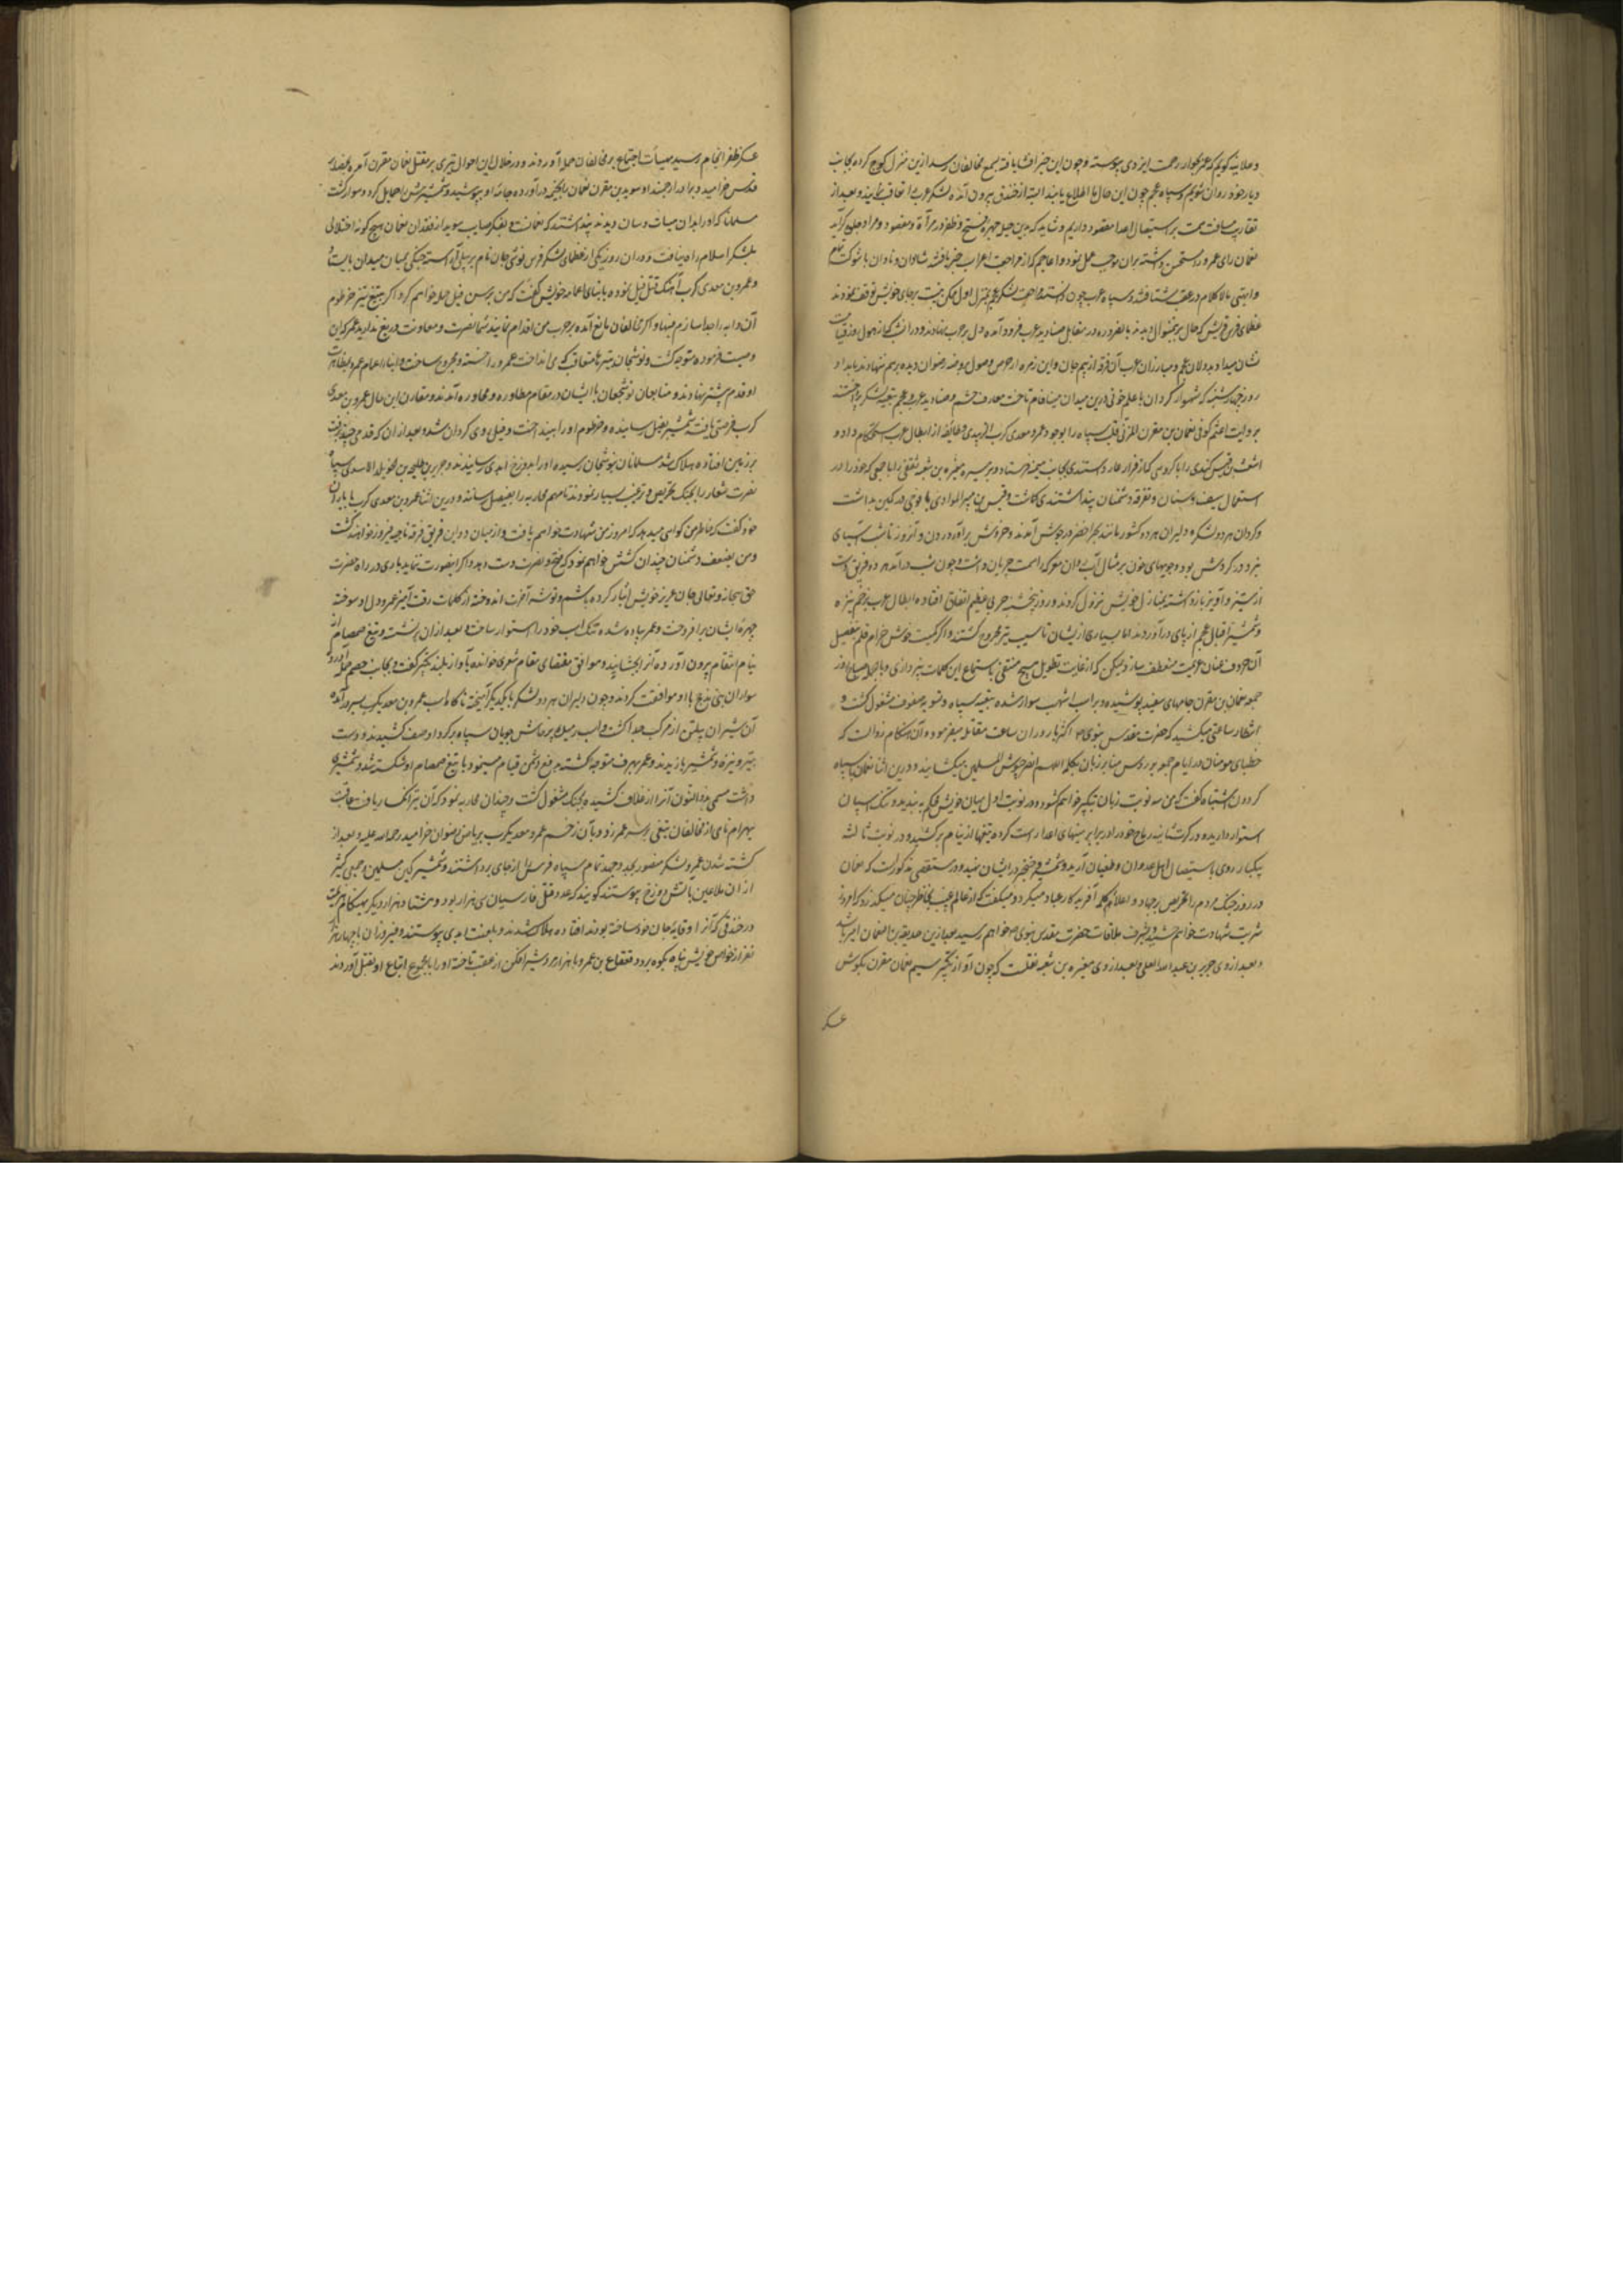 و علانیه کویم که عمر بجوار رحمت ایزدی پیوسته و چون این خبر افشا یافته بسمع مخالفان رسد ازین منزل کوچ کرده بجانب
دیار خود روان شویم و سپاه عجم چون این حال را اطلاع یابند البته از خندق بیرون آمده لشکر عرب را تعاقب نمایند و بعد از
تقارب مسافت همت بر استیصال اعدا معقود داریم و شاید که بدین حیل چهره فتح و ظفر در مرآة مقصود و مراد جلوه کر آید
نعمان رای عمرو را مستحسن داشته بران موجب عمل نمود و اعاجم که از مراجعت اعراب خبر یافتند شادان و نادان با شوکت
و ابهتی لا کلام در عقب شتافتند و سپاه عرب چون دانستند مراجعت لشکر عجم بمنزل اول ممکن نیست بر جای خویش توقف نمودند
عظمای فرس که حال بر ینمنوال دیدند بالضروره در مقابل صنادید عرب فرود آمده دل بر حرب نهادند و در ان شب که از هول روز قیامت
نشان میداد بددلان عجم و مبارزان عرب آن فرقه از بیم جان و این زمره از حرص وصول بروضه رضوان دیده برهم ننهادند بامداد
روز چهارشنبه که شهسوار کردان با علم خونی درین میدان مینافام تاخت معارف حشم و صنادید عرب و عجم بتعبیه لشکر پرداختند
بروایت اعثم کوفی نعمان بن مقرن المزنی قلب سپاه را بوجود عمرو معدی کرب الزبیدی و طایفه از ابطال عرب استحکام داد و
اشعث بن قیس کندی را با کروهی که از فرار عار داشتندی بجانب میمنه فرستاد و بر میسره مغیره بن شعبه ثقفی را با جمعی که خود را در
استعمال سیف و سنان و تفرقه دشمنان پنداشتندی کماشت و قیس بن هبیر المرادی با فوجی در کمین بداشت
و کردان هر دو لشکر و دلیران هر دو کشور مانند بحر اخضر در جوش آمدند و خروش برآوردند و آنروز تا شب آسیای
نبرد در کردش بود و جویهای خون بر مثال آب روان در معرکه سمت جریان داشت و چون شب درآمد هر دو فریق دست
از ستیز و آویز بازداشته بمنازل خویش نزول کردند و روز پنجشنبه حربی عظیم اتفاق افتاده ابطال عرب بزخم نیزه
و شمشیر اقیال عجم از پای درآوردند اما بسیاری از یشان تاسیب تیر مجروح کشتند و اکر کمیت خوش خرام قلم بتفصیل
آن حروف عنان عزیمت منعطف سازد ممکن که از غایت تطویل هیچ متنفس باستماع این کلمات نپردازی و بامداد صباح روز
جمعه نعمان بن مقرن جامهای سفید پوشیده و بر اسب اشهب سوار شده بتعبیه سپاه و تسویه صفوف مشغول کشت و
انتظار ساعتی میکشید که حضرت مقدس نبوی اکثر بار در ان ساعت مقاتله میفرموده آن هنکام زوالست که
خطبای مومنان در ایام جمعه بر رؤس منابر زبان بکلمه اللهم انصر جیوش المسلمین میکشایند و درین اثنا نعمان با سپاه
کردون اشتباه کفت که من سه نوبت زبان بتکبیر خواهم کشود در نوبت اول میان خویش محکم ببندید و تنک اسپان
استوار دارید و در کرت ثانیه رماح خود را در برابر سینهای اعدا راست کرده تیغها از نیام برکشید و در نوبت ثالثه
بیکبار روی باستیصال اهل عدوان و طغیان آرید و شمشیر و خنجر در ایشان نهید و در مستقصی مذکورست که نعمان
در روز جنک مردم را تحریض بر جهاد و اعلاء کلمه آفریدکار عباد میکرد و میکفت که از عالم غیب بخاطر چنان میکذرد که امروز
شربت شهادت خواهم چشید و بشرف ملاقات حضرت مقدس نبوی خواهم رسید بعد از من حذیفه بن الیمان امیر باشد
و بعد از وی جریر بن عبدالله البجلی و بعد از وی مغیره بن شعبه نقلست که چون آواز تکبیر سیم نعمان مقرن بکوش
عسکر
عسکر ظفر انجام رسید بهیأت اجتماع بر مخالفان حمله آوردند و در خلال این احوال تیری بر مقتل نعمان مقرن آمده بحضایر
قدس خرامید و برادر ارجمند او سوید بن مقرن نعمان را بخیمه درآورده جامه او بپوشید و شمشیرش را حمایل کرده و سوار کشت
مسلمانان که او را بدان هیات و سان دیدند پنداشتند که نعمانست و بفکر صایب سوید از فقدان نعمان هیچ کونه اختلالی
بلشکر اسلام راه نیافت و در ان روز یکی از عظمای لشکر فرس نوشجان نام بر پیلی آراسته جنکی بمیان میدان بایستاد
و عمرو بن معدی کرب آهنک قتل فیل نموده با بنای اعمام خویش کفت که من برین فیل حمله خواهم کرد اکر بتیغ تیز خرطوم
آن دابه را جدا سازم فبها و اکر مخالفان مانع آمده بر حرب من اقدام نمایند شما نصرت و معاونت دریغ ندارید عمرو این
وصیت فرموده متوجه کشت و نوشجان تیرها متعاقب یکدیکر انداخت عمرو را خسته و مجروح ساخت و ابنای اعمام عمرو بمظاهرت
او قدم پیشتر نهادند و متابعان نوشجان با ایشان در مقام مطاوره و محاوره آمدند و مقارن این حال عمرو بن معدی
کرب فرصتی یافته شمشیر بفیل رسانیده و خرطوم او را بینداخت و فیل روی کردان شد و بعد از ان که قدمی چند برفت
بر زمین افتاده هلاک شد مسلمانان بنوشجان رسیده او را بدوزخ ابدی رسانیدند و جریر و طلیحه بن خویلد الاسدی سپاه
نصرت شعار را بجنک تحریص و ترغیب بسیار نمودند تا مهم محاربه را بفیصل رسانند و درین اثنا عمرو بن معدی کرب با یاران
خود کفت که خاطر من کواهی میدهد که امروز من شهادت خواهم یافت و از میان دو این فریق فرقه ناجیه فیروز خواهند کشت
و من بضعف دشمنان چندان کشش خواهم نمود که فتح و نصرت دست دهد و اکر اینصورت ننماید باری در راه حضرت
حق سبحانه و تعالی جان عزیز خویش ایثار کرده باشم و توشه آخرت اندوخته از کلمات رقت آمیز عمرو دل او سوخته
چهره ایشان برافروخت و عمرو پیاده شده تنک اسب خود را استوار ساخت و بعد از ان برنشست و تیغ صمصام از
نیام انتقام بیرون آورده آنرا بجنبانید و موافق مقتضای مقام شعری خوانده بآواز بلند تکبیر کفت و بجانب خصم حمله آورد و
سواران بنی مذحج با او موافقت کردند و چون دلیران هر دو لشکر با یکدیکر آمیخته ناکاه اسب عمرو بن معدیکرب بسر درآمده
آن شیر ان پیلتن از مرکب جدا کشت و اسب رمیده پرخاش جویان سپاه برکرد او صف کشیدند و دست
بتیر و نیزه و شمشیر یازیدند و عمرو بهر طرف متوجه کشته بدفع دشمن قیام مینمود تا تیغ صمصام او شکسته شد و شمشیری
داشت مسمی بذوالنون آنرا از غلاف کشیده بجنک مشغول کشت و چندان محاربه نمود که آن نیز انکسار یافت عاقبت
بهرام نامی از مخالفان تیغی بر سر عمرو زد و بآن زخم عمرو معدیکرب بریاض رضوان خرامید رحمه الله علیه و بعد از
کشته شدن عمرو لشکر منصور بجد و جهد تمام سپاه فرس را از جای برداشتند و شمشیر کین مسلمین جمعی کثیر
از ان ملاعین بآتش دوزخ پیوستند کویند که عدد قتل فارسیان سی هزار بود و هشتاد هزار دیکر بهنکام هزیمت
در خندقی که آنرا وقایه جان خود ساخته بودند افتاده هلاک شدند و بلعنت ابدی پیوستند و فیروزان با چهار هزار
نفر از خواص خویش پناه بکوه برد و قعقاع بن عمرو با هزار مرد شیر افکن از عقب تاخته او را با مجموع اتباع او بقتل آوردند